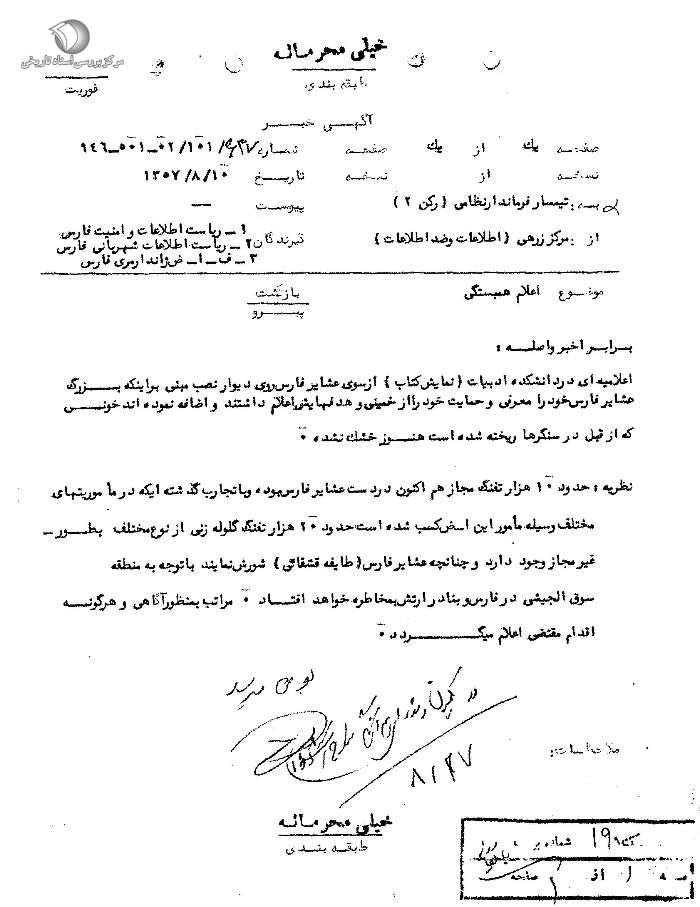 مرکز بررسی اسناد تاریخی
خیلی محرمانه
طبقه بندی
فوریت
آگهی خبر
صفحه یك از یك صفحه شماره ۵۰۱-۰۲/۱۰۱/
نسخه از نسخه تاریخ ۱۳۵۷/۸/۱۰
به : تیمسار فرماندار نظامی (رکن ۲) پیوست —
از : مرکز زرهی (اطلاعات وضد اطلاعات) گیرندگان
۱ـ ریاست اطلاعات و امنیت فارس
۲ـ ریاست اطلاعات شهربانی فارس
۳ـ ف ـ ا ـ ض ژاندارمری فارس
موضوع اعلام همبستگی بازگشت
پیرو
برابر اخبر واصله :
اعلامیه ای در دانشکده ادبیات (نمایش کتاب) از سوی عشایر فارس روی دیوار نصب مبنی براینکه بزرگ
عشایر فارس خود را معرفی و حمایت خود را از خمینی و هدفهایش اعلام داشتند و اضافه نموده اند خونی
که از قبل در سنگرها ریخته شده است هنوز خشك نشده ۰
نظریه : حدود ۱۰ هزار تفنگ مجاز هم اکنون در دست عشایر فارس بوده وبا تجارب گذشته ایکه در مأموریتهای
مختلف وسیله مأمور این امر کسب شده است حدود ۲۰ هزار تفنگ گلوله زنی از نوع مختلف بطور ـ
غیر مجاز وجود دارد و چنانچه عشایر فارس (طایفه قشقائی) شورش نمایند با توجه به منطقه
سوق الجیشی در فارس و بنادر ارتش بمخاطره خواهد افتاد ۰ مراتب بمنظور آگاهی و هرگونه
اقدام مقتضی اعلام میگردد ۰
ملاحظات:
خیلی محرمانه
طبقه بندی
شماره
صفحه